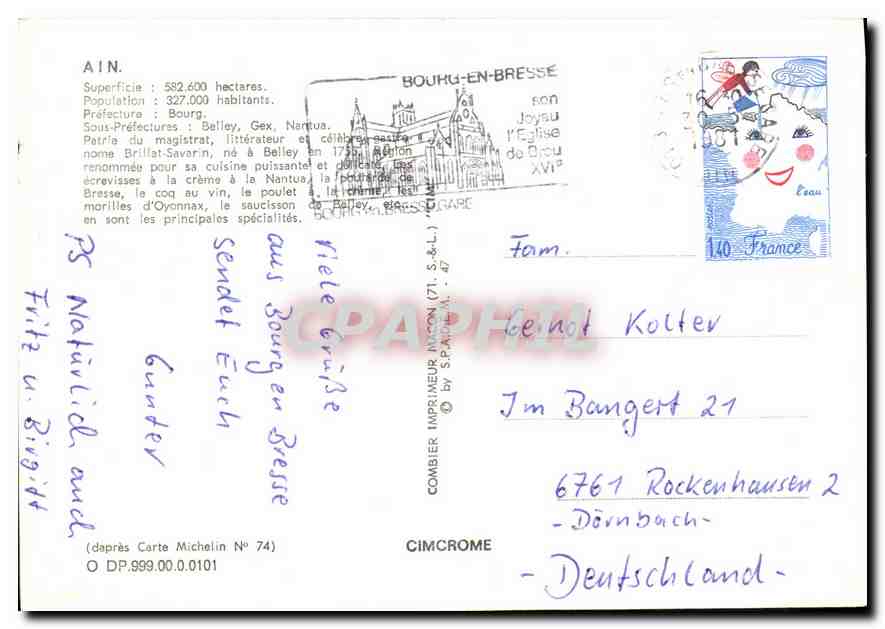 AIN.
Superficie : 582.600 hectares.
Population : 327.000 habitants.
Préfecture : Bourg.
Sous-Préfectures : Belley, Gex, Nantua.
Patrie du magistrat, littérateur et célèbre gastro-
nome Brillat-Savarin, né à Belley en 1755. Région
renommée pour sa cuisine puissante et délicate. Les
écrevisses à la crème à la Nantua, la poularde de
Bresse, le coq au vin, le poulet à la crème, les
morilles d'Oyonnax, le saucisson de Belley, etc...
en sont les principales spécialités.
BOURG-EN-BRESSE
son
Joyau
l'Eglise
de Brou
XVIe
BOURG-en-BRESSE GARE
16
1981
l'eau
1,40 France
Viele Grüße
aus Bourg en Bresse
sendet Euch
Gunter
PS Natürlich auch
Fritz u. Birgitt
COMBIER IMPRIMEUR MACON (71. S.-&-L.) "CIM"
© by S.P.A.D.E.M. - 47
Fam.
Gernot Kolter
Im Bangert 21
6761 Rockenhausen 2
-Dörnbach-
- Deutschland -
(daprès Carte Michelin No 74)
O DP.999.00.0.0101
CIMCROME
CPAPHIL